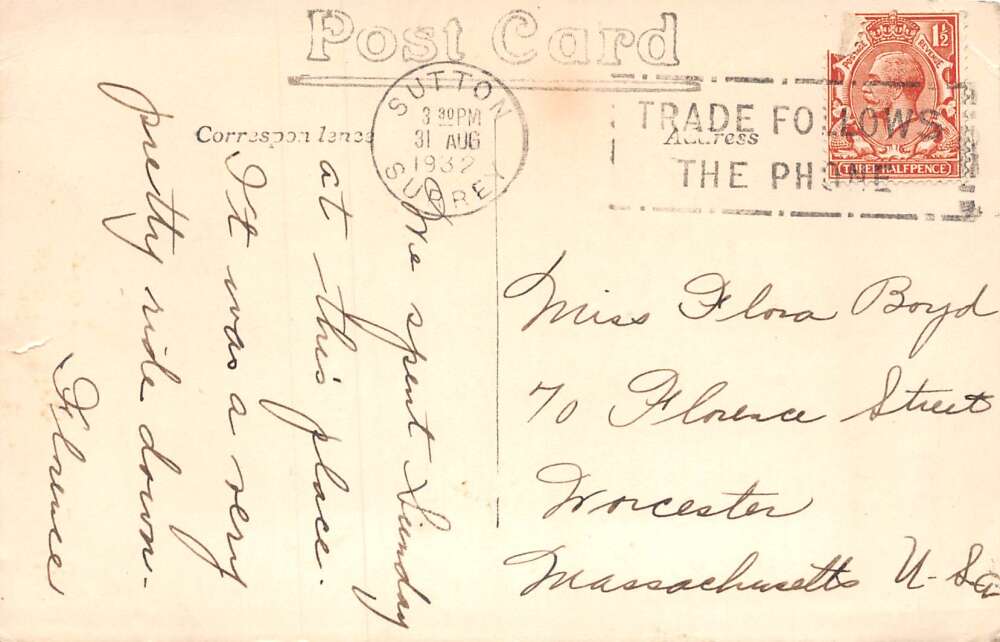 Post Card
Correspondence
Address
SUTTON
3 30 PM
31 AUG
1932
SURREY
TRADE FOLLOWS
THE PHONE
POSTAGE
REVENUE
1½
THREE HALFPENCE
We spent Sunday
at this place.
It was a very
pretty ride down-
Florence
Miss Flora Boyd
70 Florence Street
Worcester
Massachusetts U-S.a